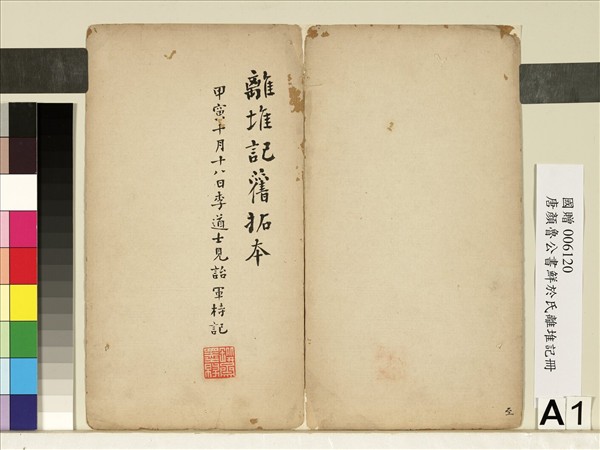 離堆記舊拓本
甲寅十月十八日李道士見詒軍持記
國贈 006120
唐顏魯公書鮮於氏離堆記冊
A1